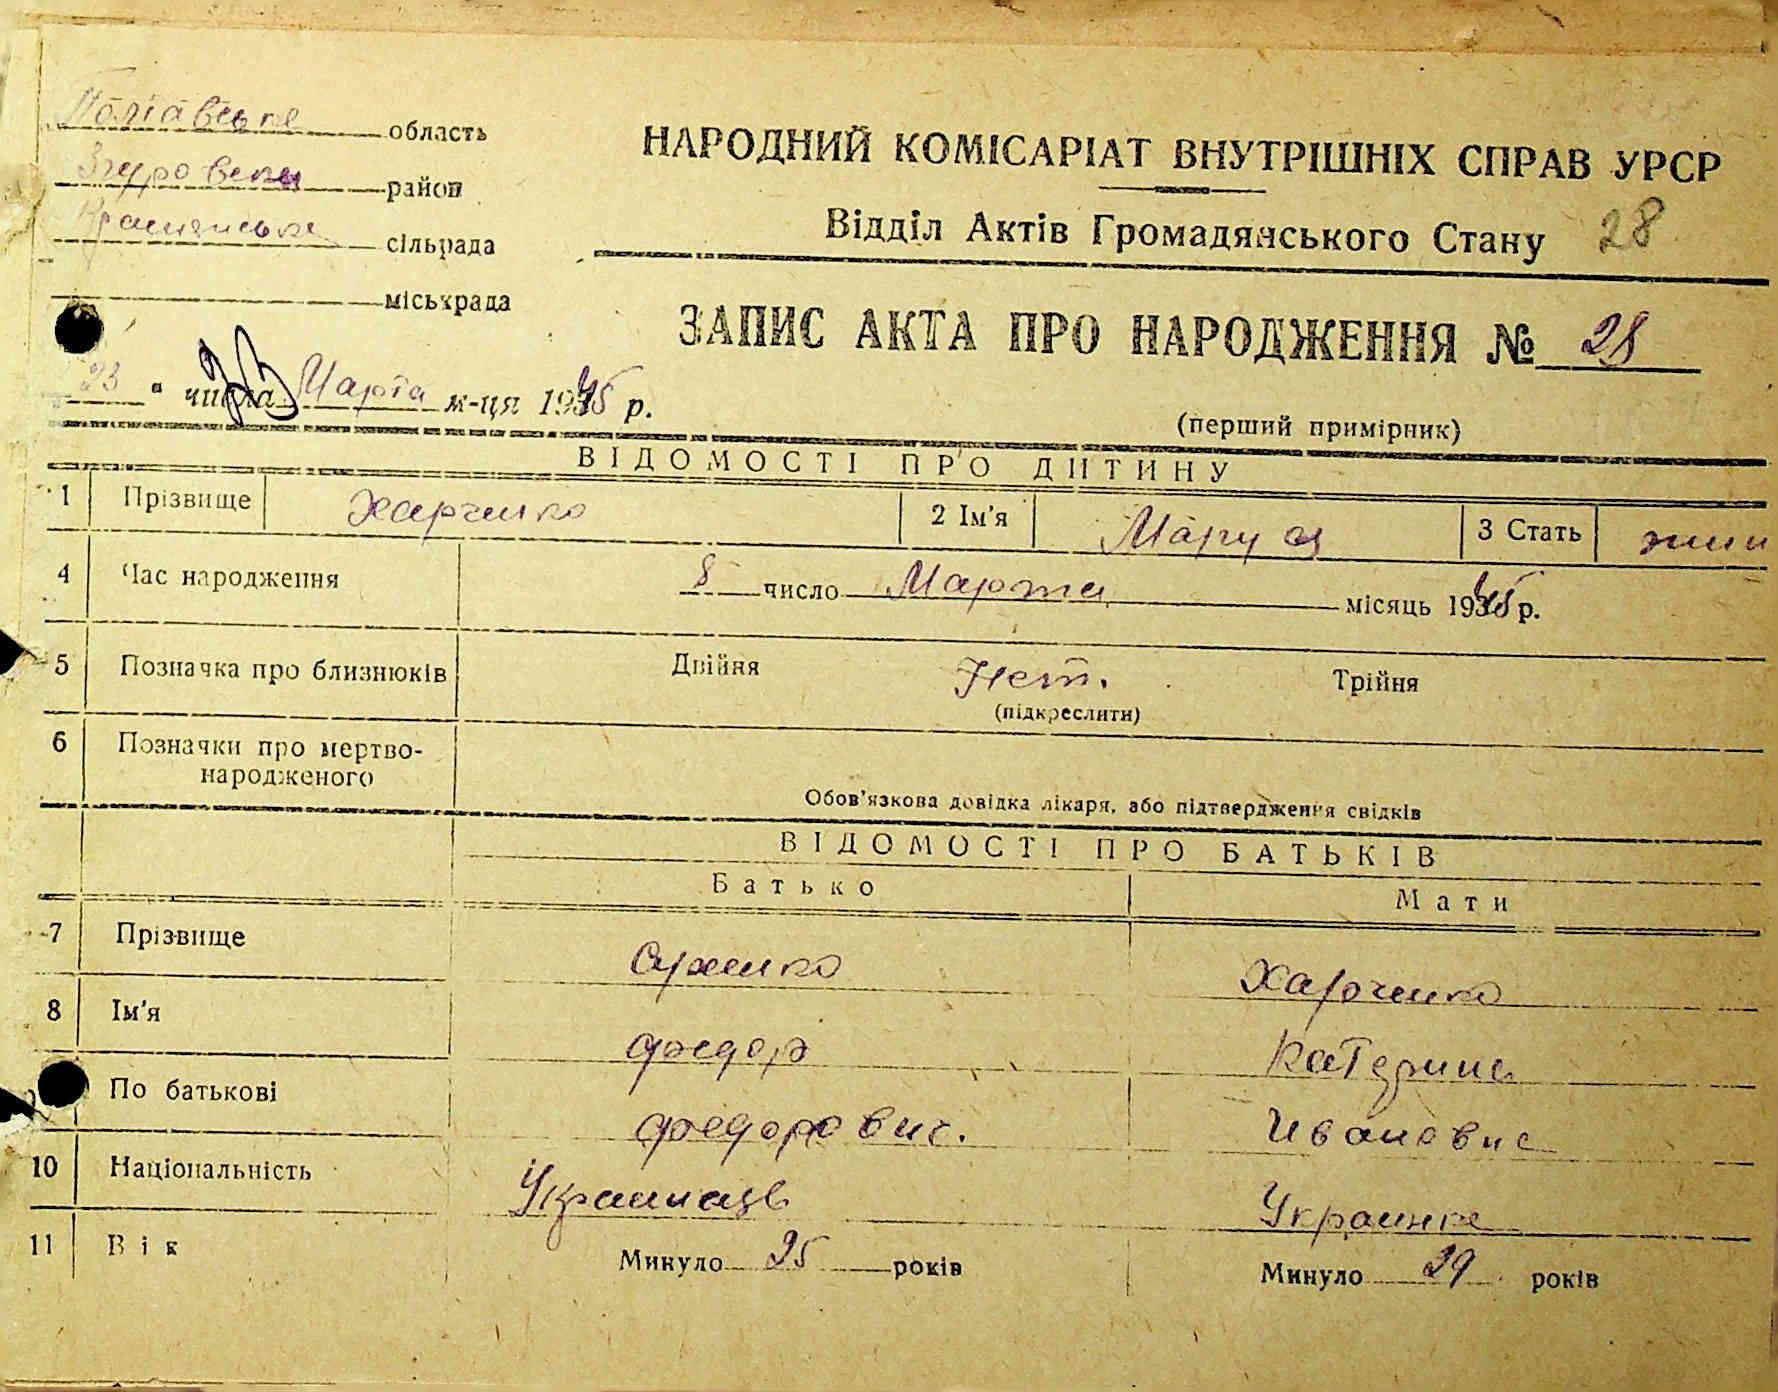 Полтавське область
Згуровски район
сільрада
міськрада
НАРОДНИЙ КОМІСАРІАТ ВНУТРІШНІХ СПРАВ УРСР
Відділ Актів Громадянського Стану 28
ЗАПИС АКТА ПРО НАРОДЖЕННЯ № 28
23 " числа Марта м-ця 1945 р.
(перший примірник)
ВІДОМОСТІ ПРО ДИТИНУ
1 Прізвище Харченко 2 Ім'я Маруся 3 Стать жин
4 Час народження 8 число Марта місяць 1945 р.
5 Позначка про близнюків Двійня Нет. Трійня
(підкреслити)
6 Позначки про мертво-
народженого
Обов'язкова довідка лікаря, або підтвердження свідків
ВІДОМОСТІ ПРО БАТЬКІВ
Батько Мати
7 Прізвище Харченко
8 Ім'я Федор Катерина
По батькові Федорович. Ивановна
10 Національність Украинець Украинка
11 Вік Минуло 25 років Минуло 29 років